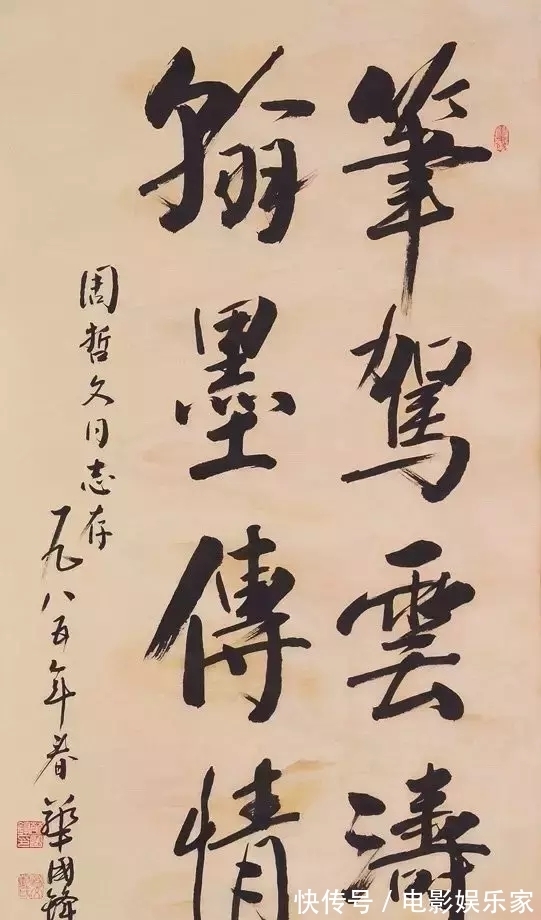 筆駕雲濤
翰墨傳情
周哲文同志存
一九八五年春
華國鋒
快传号/电影娱乐家